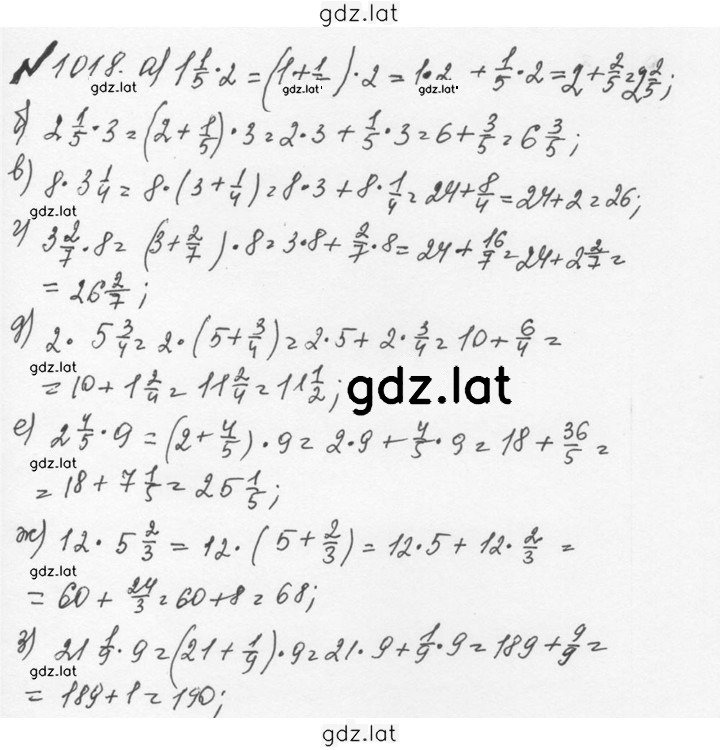 gdz.lat
№1018. а) 1 1/5 · 2 = (1 + 1/ ) · 2 = 1 · 2 + 1/5 · 2 = 2 + 2/5 = 2 2/5;
gdz.lat gdz.lat gdz.lat
б) 2 1/5 · 3 = (2 + 1/5) · 3 = 2 · 3 + 1/5 · 3 = 6 + 3/5 = 6 3/5;
в) 8 · 3 1/4 = 8 · (3 + 1/4) = 8 · 3 + 8 · 1/4 = 24 + 8/4 = 24 + 2 = 26;
gdz.lat
г) 3 2/7 · 8 = (3 + 2/7) · 8 = 3 · 8 + 2/7 · 8 = 24 + 16/7 = 24 + 2 2/7 =
= 26 2/7;
д) 2 · 5 3/4 = 2 · (5 + 3/4) = 2 · 5 + 2 · 3/4 = 10 + 6/4 =
gdz.lat
= 10 + 1 2/4 = 11 2/4 = 11 1/2;
gdz.lat
е) 2 4/5 · 9 = (2 + 4/5) · 9 = 2 · 9 + 4/5 · 9 = 18 + 36/5 =
gdz.lat
= 18 + 7 1/5 = 25 1/5;
ж) 12 · 5 2/3 = 12 · (5 + 2/3) = 12 · 5 + 12 · 2/3 =
gdz.lat
= 60 + 24/3 = 60 + 8 = 68;
з) 21 1/9 · 9 = (21 + 1/9) · 9 = 21 · 9 + 1/9 · 9 = 189 + 9/9 =
gdz.lat
= 189 + 1 = 190;
gdz.lat